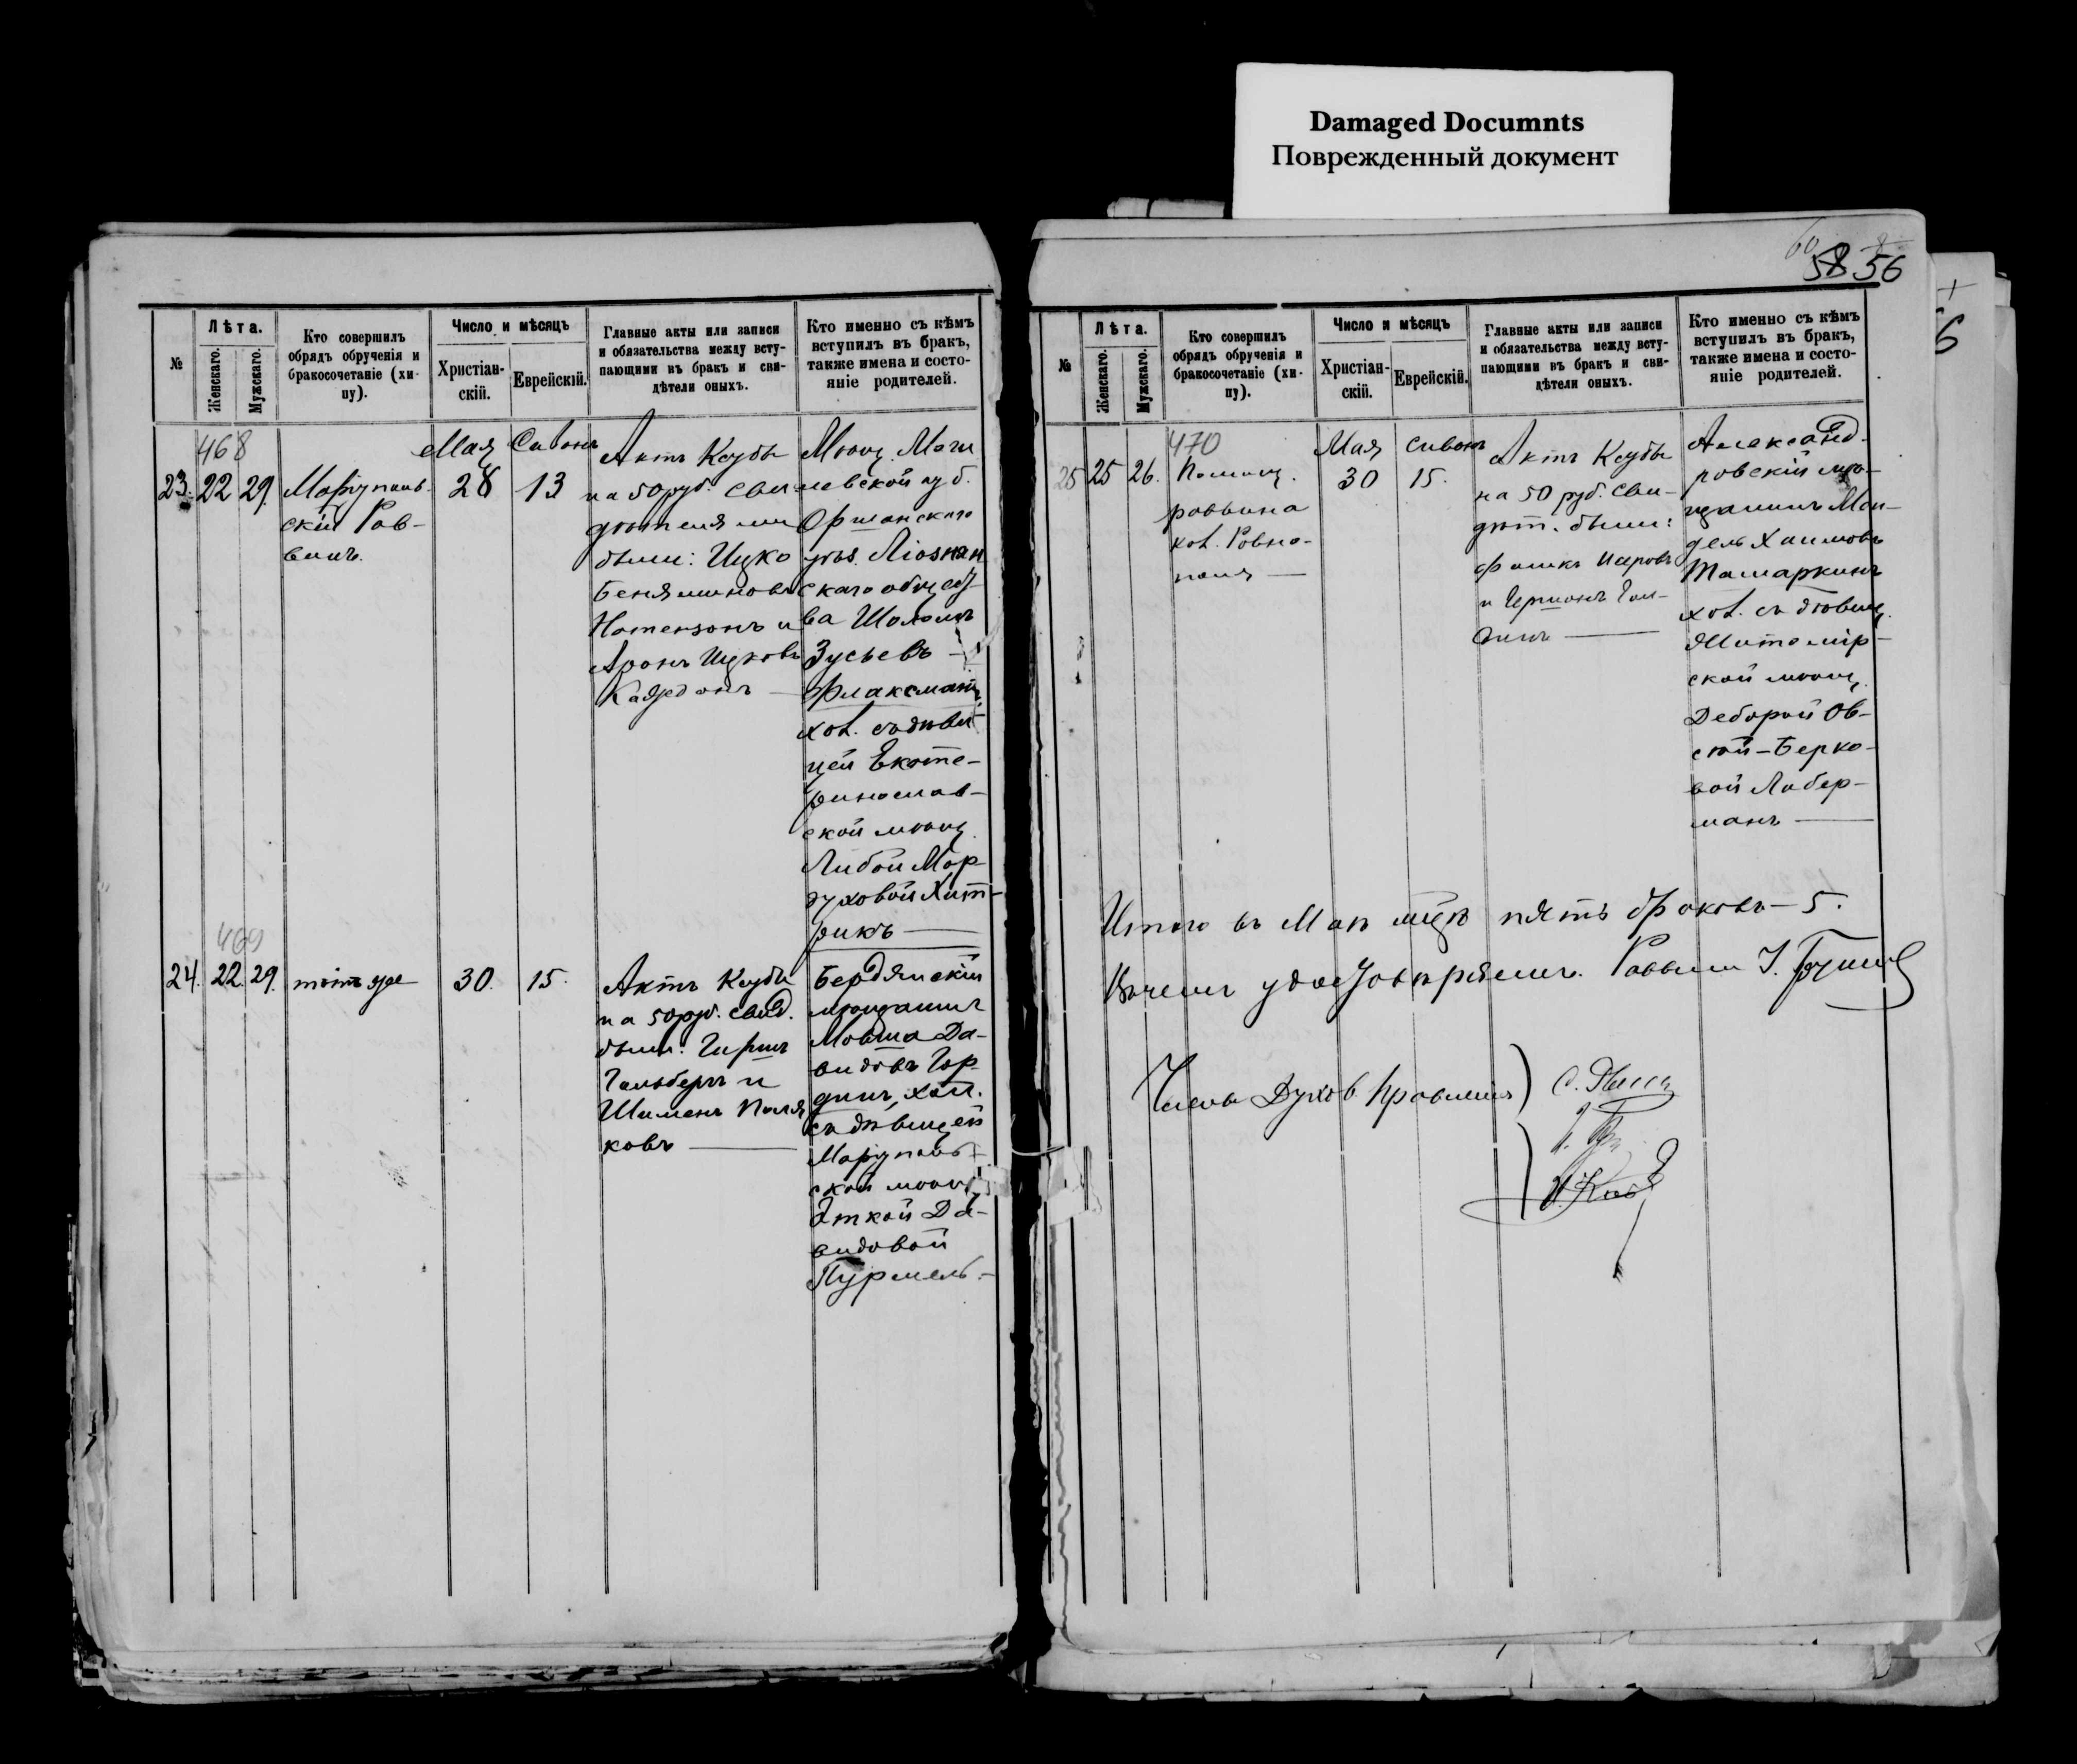 Damaged Documnts
Поврежденный документ
58 56
№
Лѣта.
Женскаго.
Мужскаго.
Кто совершилъ
обрядъ обрученія и
бракосочетаніе (хи-
пу).
Число и мѣсяцъ
Христіан-
скій.
Еврейскій.
Главные акты или записи
и обязательства между всту-
пающими въ бракъ и сви-
дѣтели оныхъ.
Кто именно съ кѣмъ
вступилъ въ бракъ,
также имена и состо-
яніе родителей.
468
23. 22 29.
Маріуполь-
скій Рав-
винъ.
Мая
28
Сивонъ
13
Актъ Ксубы
на 50 руб. Сви-
дѣтелями
были: Ицко
Беняминовъ
Натензонъ и
Аронъ Ицковъ
Мѣщ. Моги
левской губ.
Оршанскаго
уѣз. Ліознян
скаго общест
ва Шоломъ
Зусьевъ
Флаксманъ,
хол. съ дѣви-
цей Екате-
ринослав-
ской мѣщ.
Либой Мор-
духовой Хит-
рикъ —
469
24. 22. 29.
тотъ же
30.
15.
Актъ Ксубы
на 50 руб. Свид.
были: Гиршъ
Гальберъ и
Шименъ Поля
ковъ —
Бердянскій
мѣщанинъ
Мовша Да-
видовъ Гор-
динъ, хол.
съ дѣвицей
Маріуполь-
ской мѣщ.
Эткой Да-
видовой
Пурмель.—
№
Лѣта.
Женскаго.
Мужскаго.
Кто совершилъ
обрядъ обрученія и
бракосочетаніе (хи-
пу).
Число и мѣсяцъ
Христіан-
скій.
Еврейскій.
Главные акты или записи
и обязательства между всту-
пающими въ бракъ и сви-
дѣтели оныхъ.
Кто именно съ кѣмъ
вступилъ въ бракъ,
также имена и состо-
яніе родителей.
470
25 25 26.
Помощ.
раввина
кол. Ровно-
поля —
Мая
30
Сивонъ
15.
Актъ Ксубы
на 50 руб. Сви-
дѣт. были:
и Германъ Гол-
динъ —
Александ-
ровскій мѣ-
щанинъ Мен-
дель Хаимовъ
Тамаркинъ
хол. съ дѣвиц.
Житомір-
ской мѣщ.
Деборой Ов-
сѣй-Берко-
вой Либер-
манъ —
Итого въ Маѣ мѣцѣ пять браковъ — 5.
В чемъ удостовѣряемъ. Раввинъ
Члены Духов. Правленія